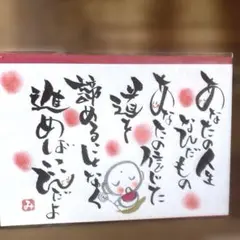 あなたの人生
なんだもの
あなたの信じた
道を
諦めることなく
進めばいいんだよ
み